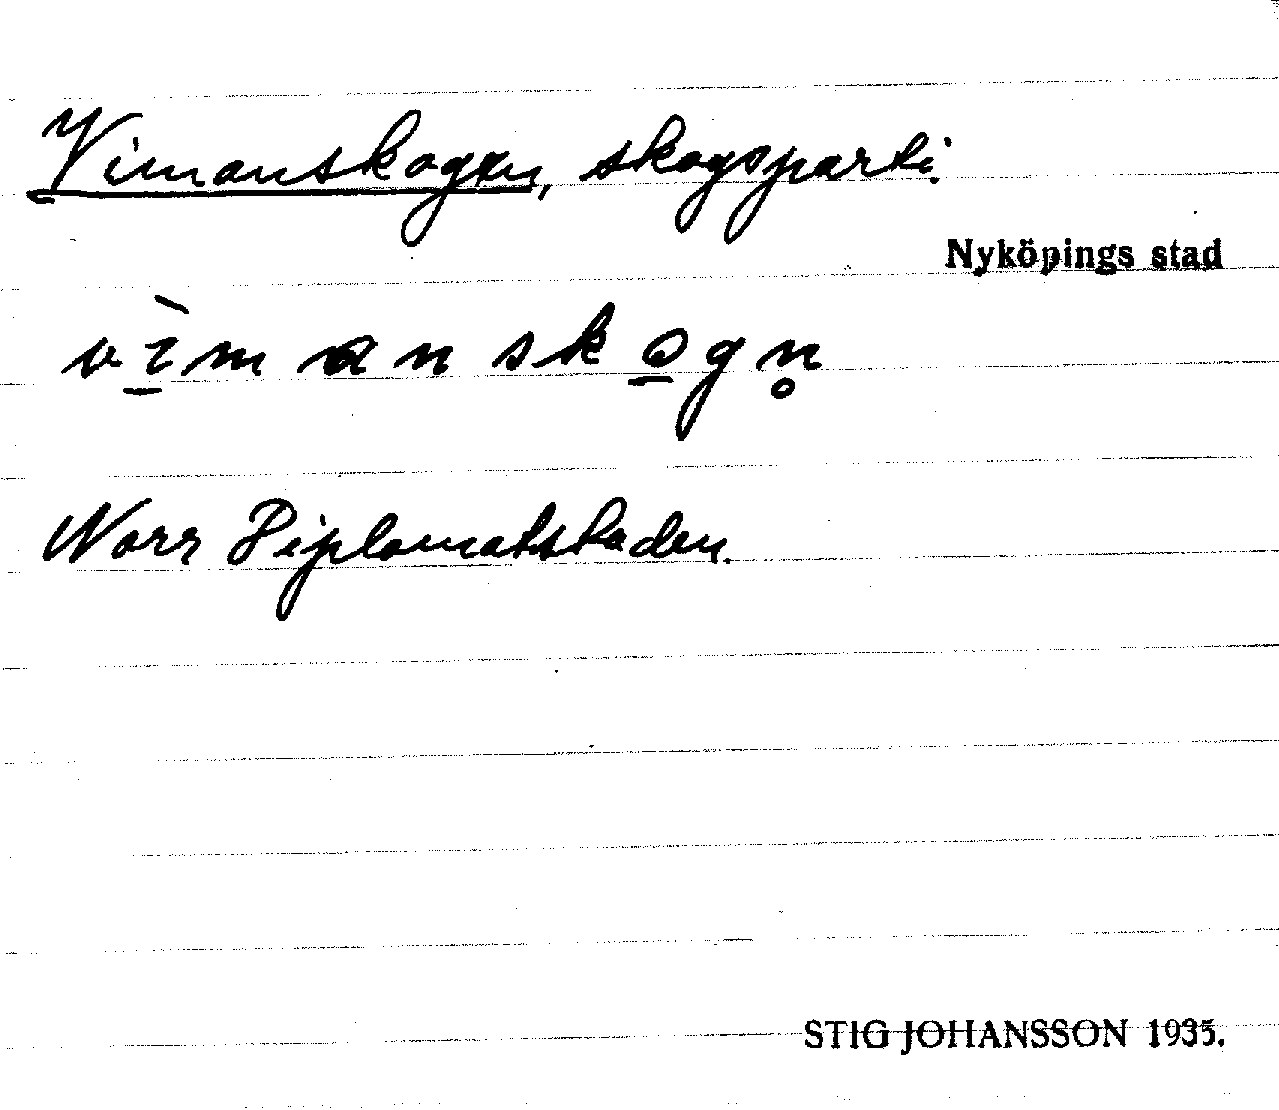 Vimanskogen, skogsparti.
Nyköpings stad
vìmanskogn̥
Norr Diplomatstaden.
STIG JOHANSSON 1935.